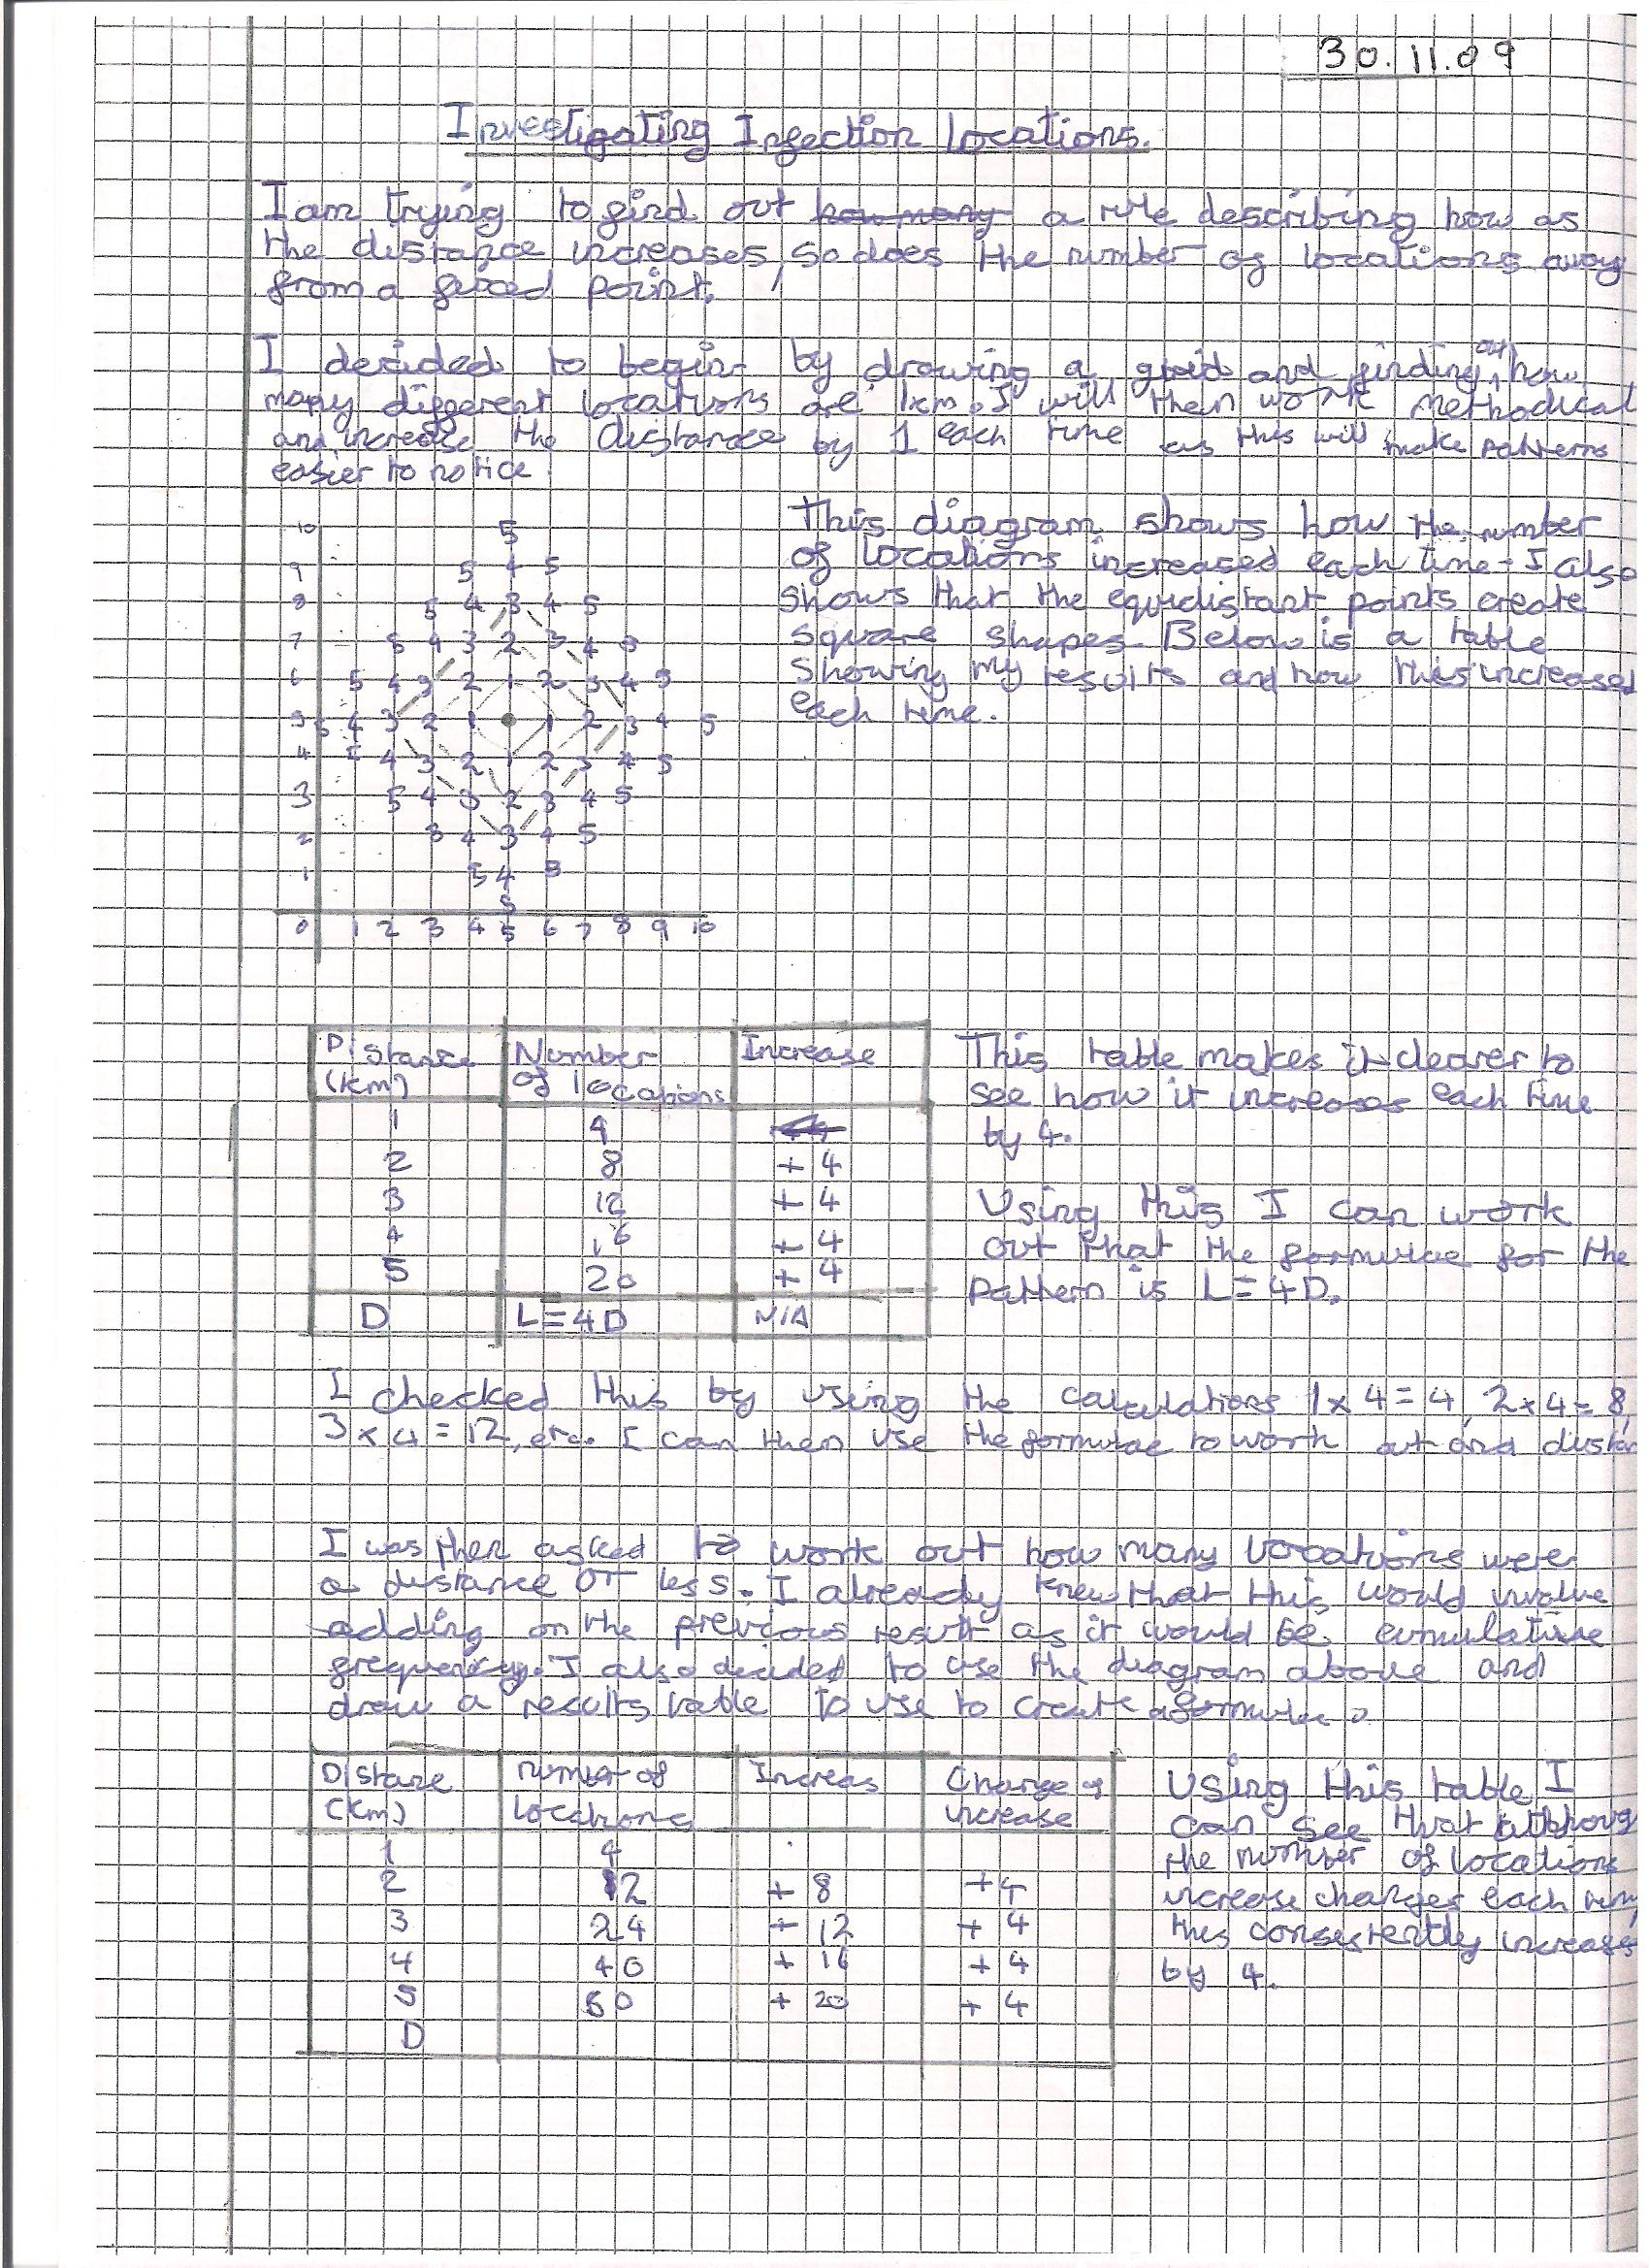 30.11.09
Investigating Infection Locations.
I am trying to find out how many a rule describing how as
the distance increases, so does the number of locations away
from a fixed point.
I decided to begin by drawing a grid and finding out how
many different locations are 1km. I will then work methodical
and increase the distance by 1 each time as this will make patterns
easier to notice.
This diagram shows how the number
of locations increased each time. I also
shows that the equidistant points create
square shapes. Below is a table
showing my results and how this increased
each time.
10 5
9 5 4 5
8 5 4 3 4 5
7 5 4 3 2 3 4 5
6 5 4 3 2 1 2 3 4 5
5 5 4 3 2 1 1 2 3 4 5
4 5 4 3 2 1 2 3 4 5
3 5 4 3 2 3 4 5
2 5 4 3 4 5
1 5 4 5
5
0 1 2 3 4 5 6 7 8 9 10
Distance (km) Number of locations Increase
1 4
2 8 + 4
3 12 + 4
4 16 + 4
5 20 + 4
D L=4D N/A
This table makes it clearer to
see how it increases each time
by 4.
Using this I can work
out that the formulae for the
pattern is L=4D.
I checked this by using the calculations 1x4=4, 2x4=8,
3x4=12, etc. I can then use the formulae to work out and distan
I was then asked to work out how many locations were
a distance or less. I already knew that this would involve
adding on the previous result as it would be cumulative
frequency. I also decided to use the diagram above and
draw a results table to use to create a formulae.
Distane (km) number of locations Increas Change of increase
1 4
2 12 + 8 +4
3 24 + 12 + 4
4 40 + 16 + 4
5 60 + 20 + 4
D
Using this table I
can see that althoug
the number of locations
increase changes each time
this consistently increases
by 4.